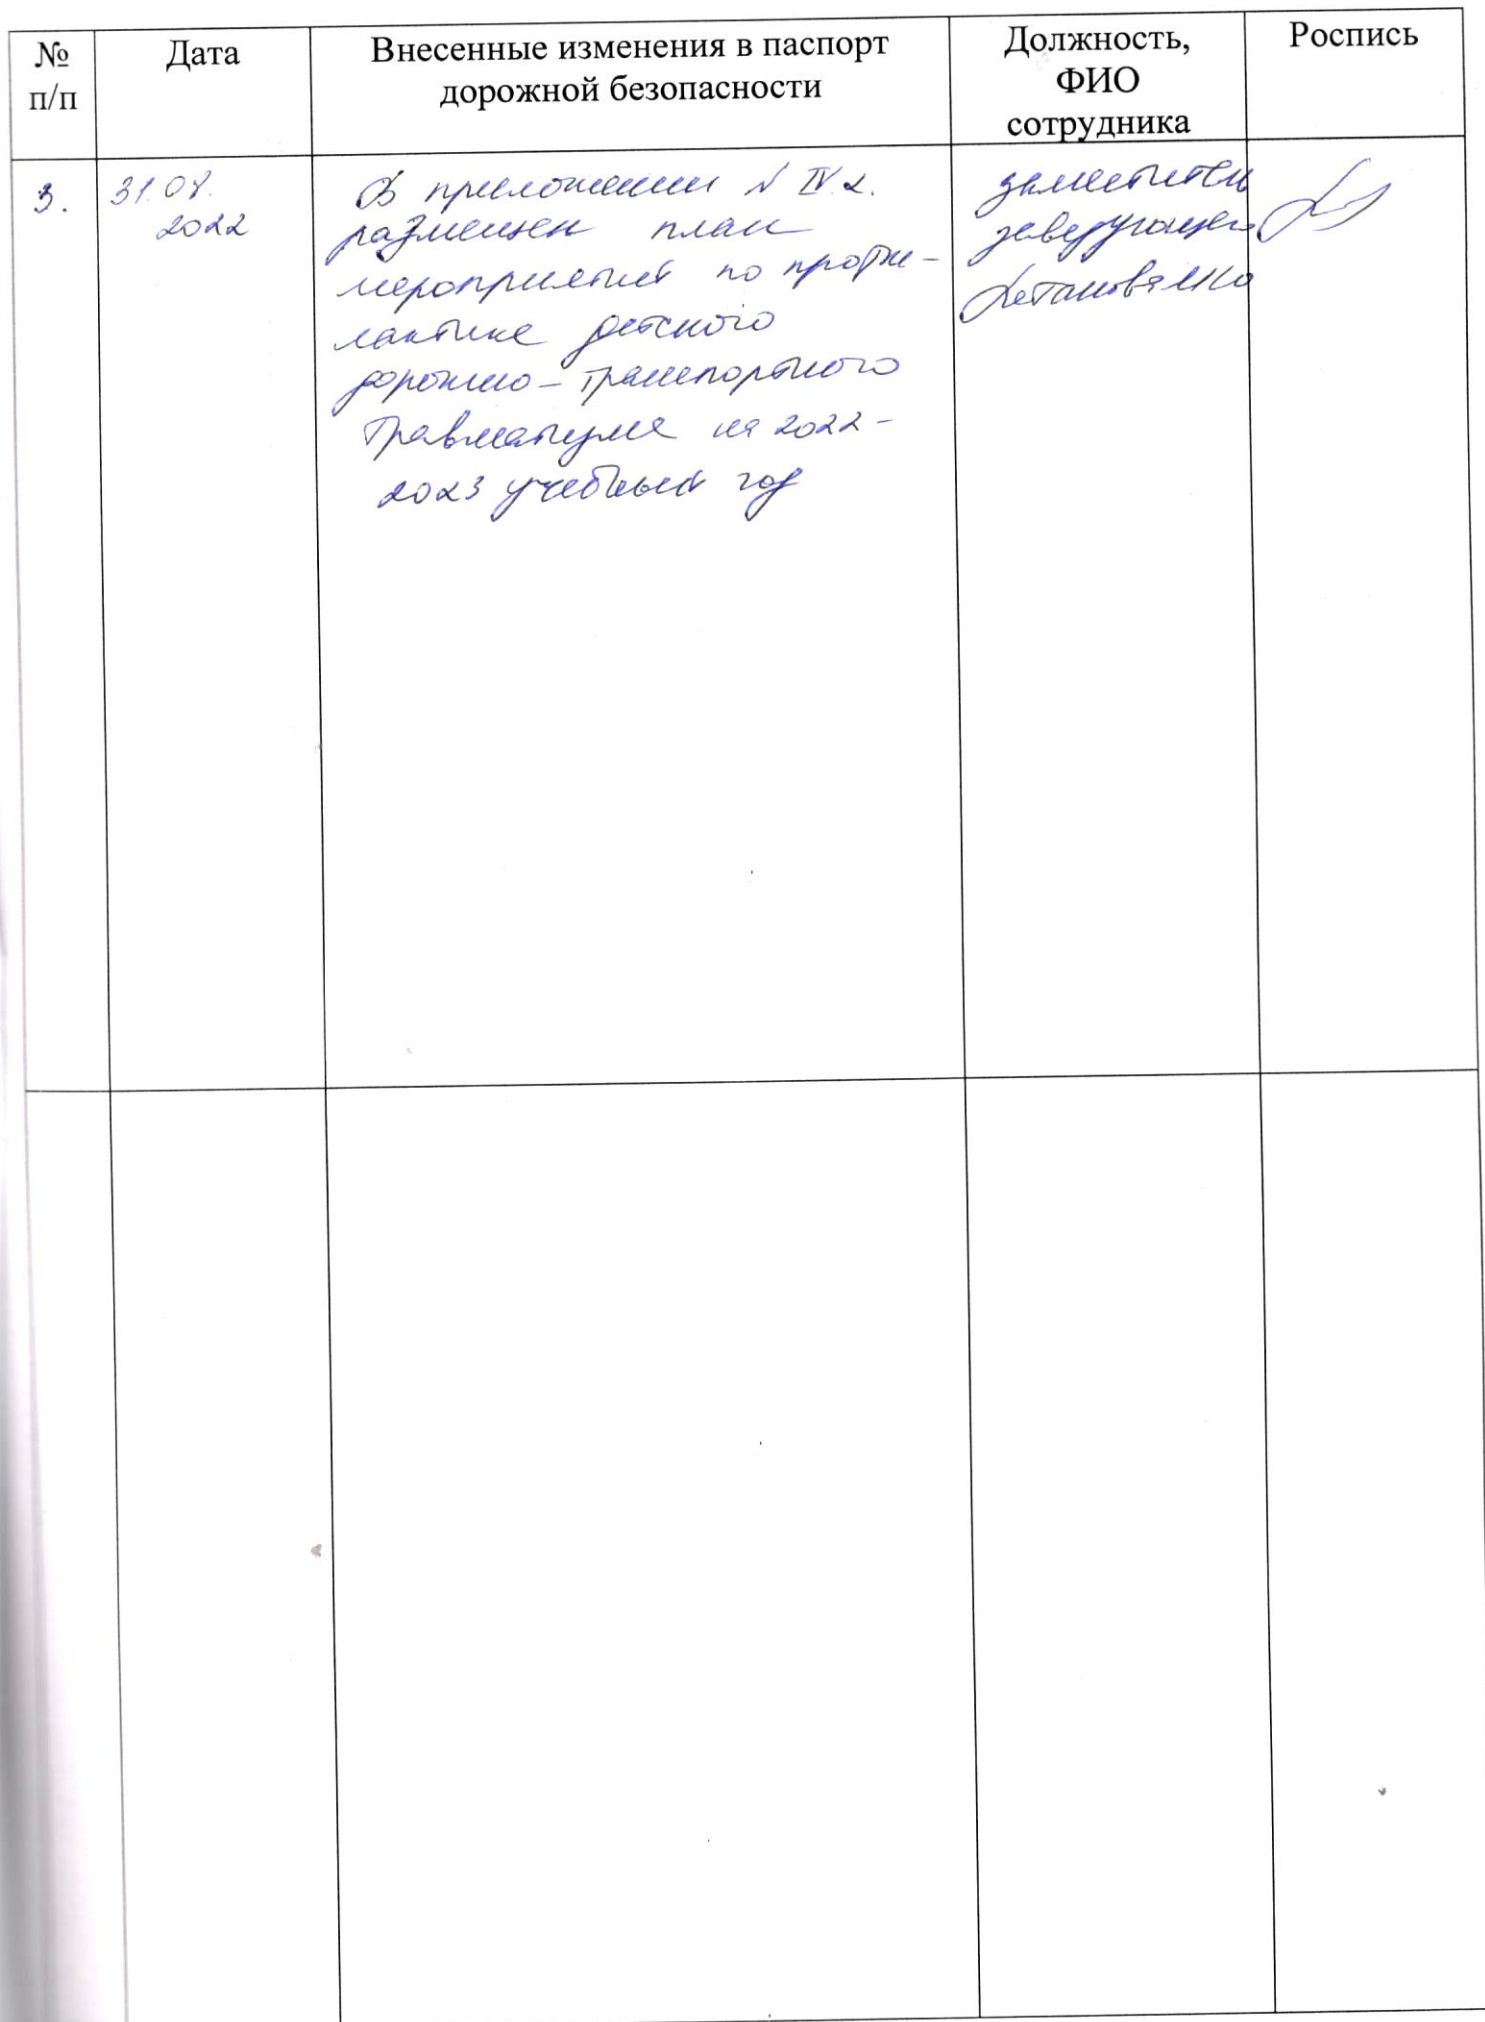 № п/п
Дата
Внесенные изменения в паспорт
дорожной безопасности
Должность,
ФИО
сотрудника
Роспись
3.
31.08.
2022
В приложении N IV 2.
размещен план
мероприятий по профи-
лактике детского
дорожно-транспортного
травматизма на 2022-
2023 учебный год
заместитель
заведующего